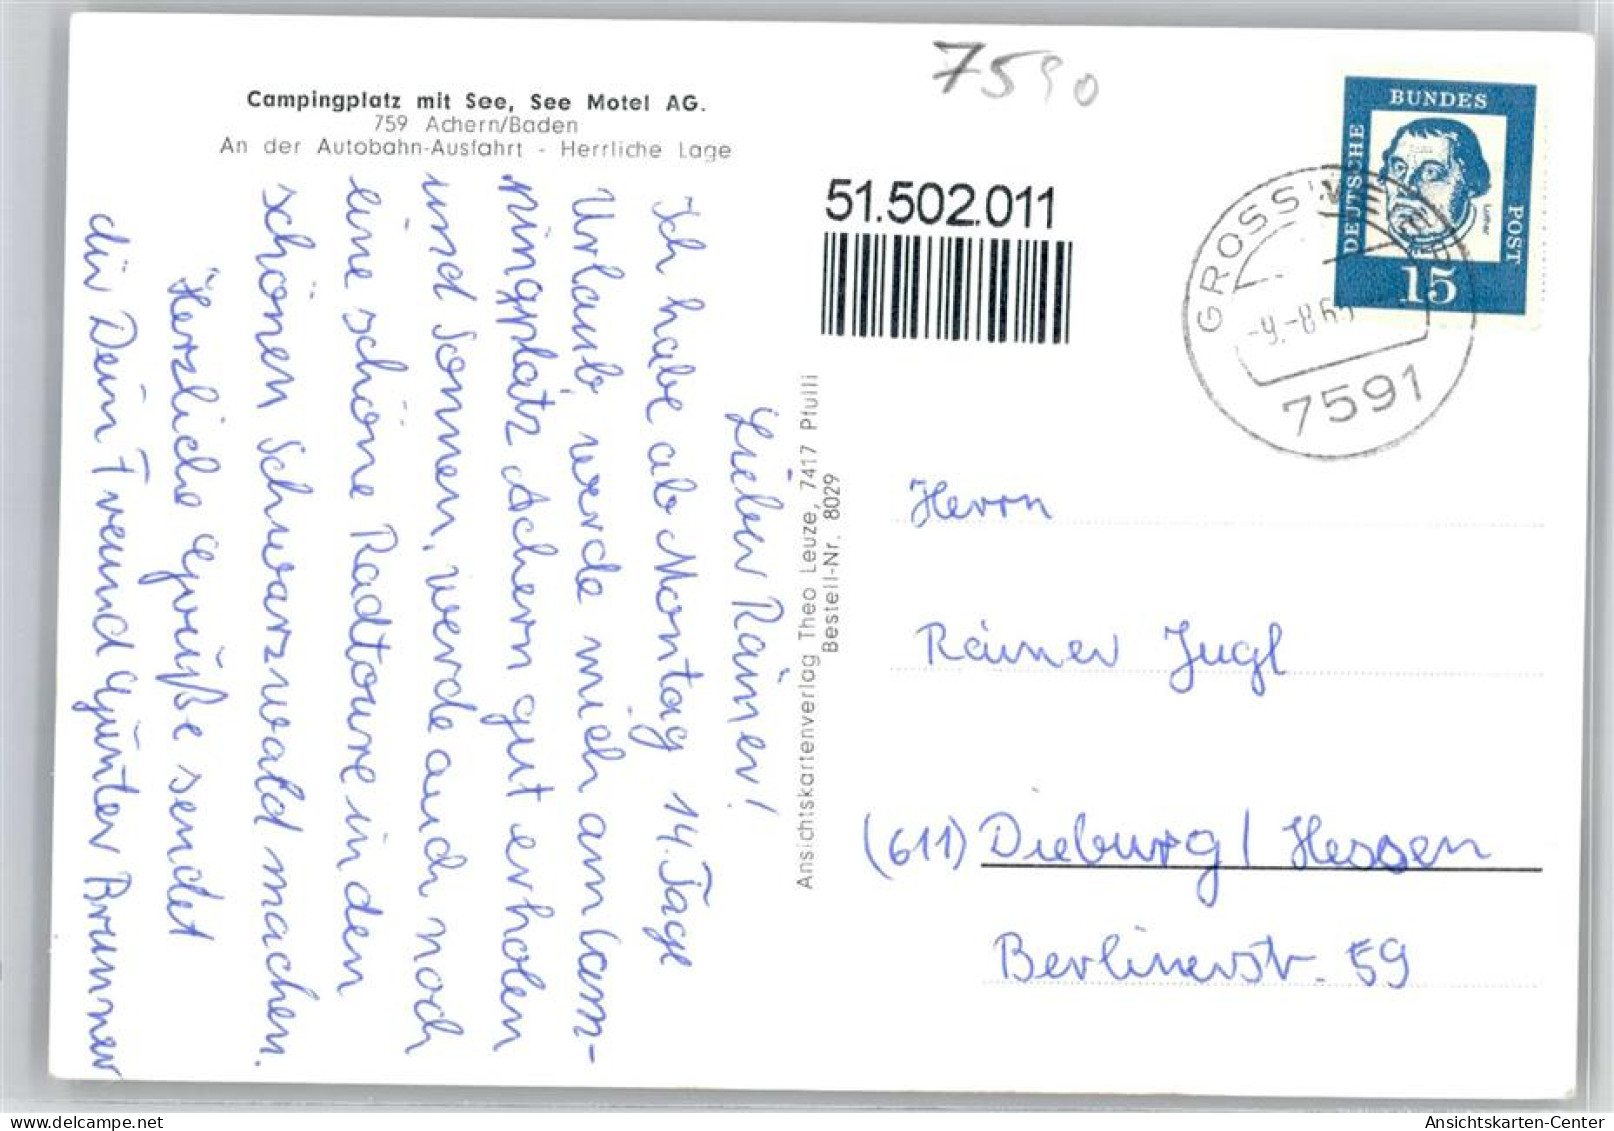 Campingplatz mit See, See Motel AG.
759 Achern/Baden
An der Autobahn-Ausfahrt - Herrliche Lage
Lieber Rainer!
Ich habe ab Montag 14. Tage
Urlaub, werde mich am Cam-
pingplatz Achern gut erholen
und Sonnen, werde auch noch
eine schöne Radtoure in den
schönen Schwarzwald machen.
Herzliche Grüße sendet
dir Dein Freund Günter Brunner
Ansichtskartenverlag Theo Leuze, 7417 Pfulli
Bestell-Nr. 8029
7590
51.502.011
DEUTSCHE
BUNDES
POST
Luther
15
-9.-8.6
7591
Herrn
Rainer Jugl
(611) Dieburg / Hessen
Berlinerstr. 59
Ansichtskarten-Center